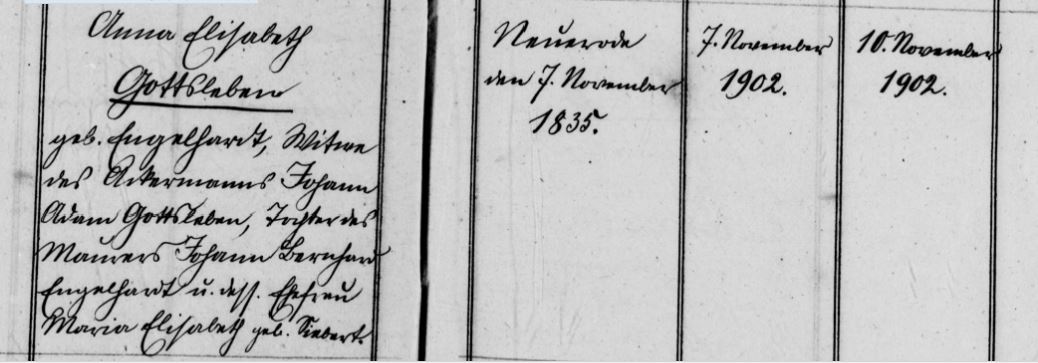 Anna Elisabeth
Gottsleben
geb. Engelhardt, Witwe
des Ackermanns Johann
Adam Gottsleben, Tochter des
Maurers Johann Bernhard
Engelhardt u. dess. Ehefrau
Maria Elisabeth geb. Siebert.
Neuerode
den 7. November
1835.
7. November
1902.
10. November
1902.